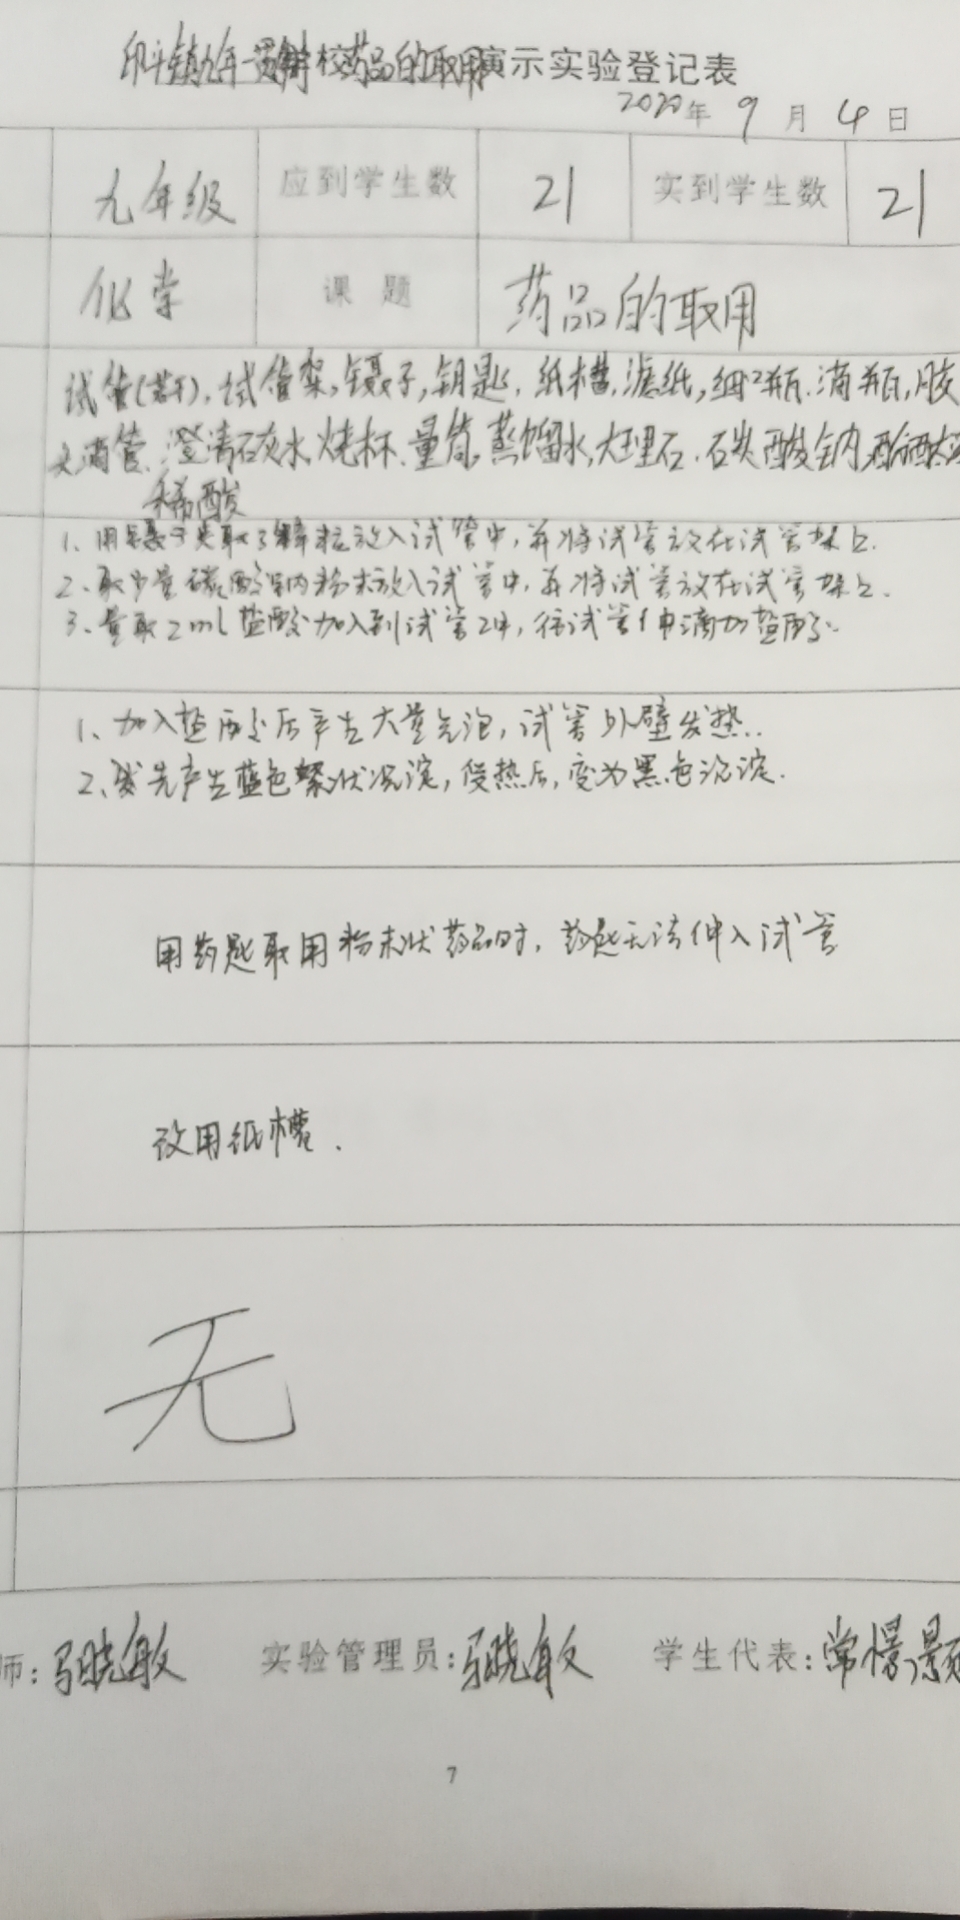 印斗镇九年一贯制学校药品的取用演示实验登记表
2020年 9 月 4 日
九年级 应到学生数 21 实到学生数 21
化学 课 题 药品的取用
试管(若干)，试管架，镊子，钥匙，纸槽，滤纸，细口瓶，滴瓶，胶
头滴管，澄清石灰水，烧杯，量筒，蒸馏水，大理石，石炭酸钠，酚酞
稀酸
1、用镊子夹取了锌粒放入试管中，并将试管放在试管架上.
2、取少量碳酸钠粉末放入试管中，并将试管放在试管架上.
3、量取2ml盐酸加入到试管2中，往试管1中滴加盐酸.
1、加入盐酸后产生大量气泡，试管外壁发热.
2、先产生蓝色絮状沉淀，受热后，变为黑色沉淀.
用药匙取用粉末状药品时，药匙无法伸入试管
改用纸槽.
无
师：马晓敏 实验管理员：马晓敏 学生代表：常
7